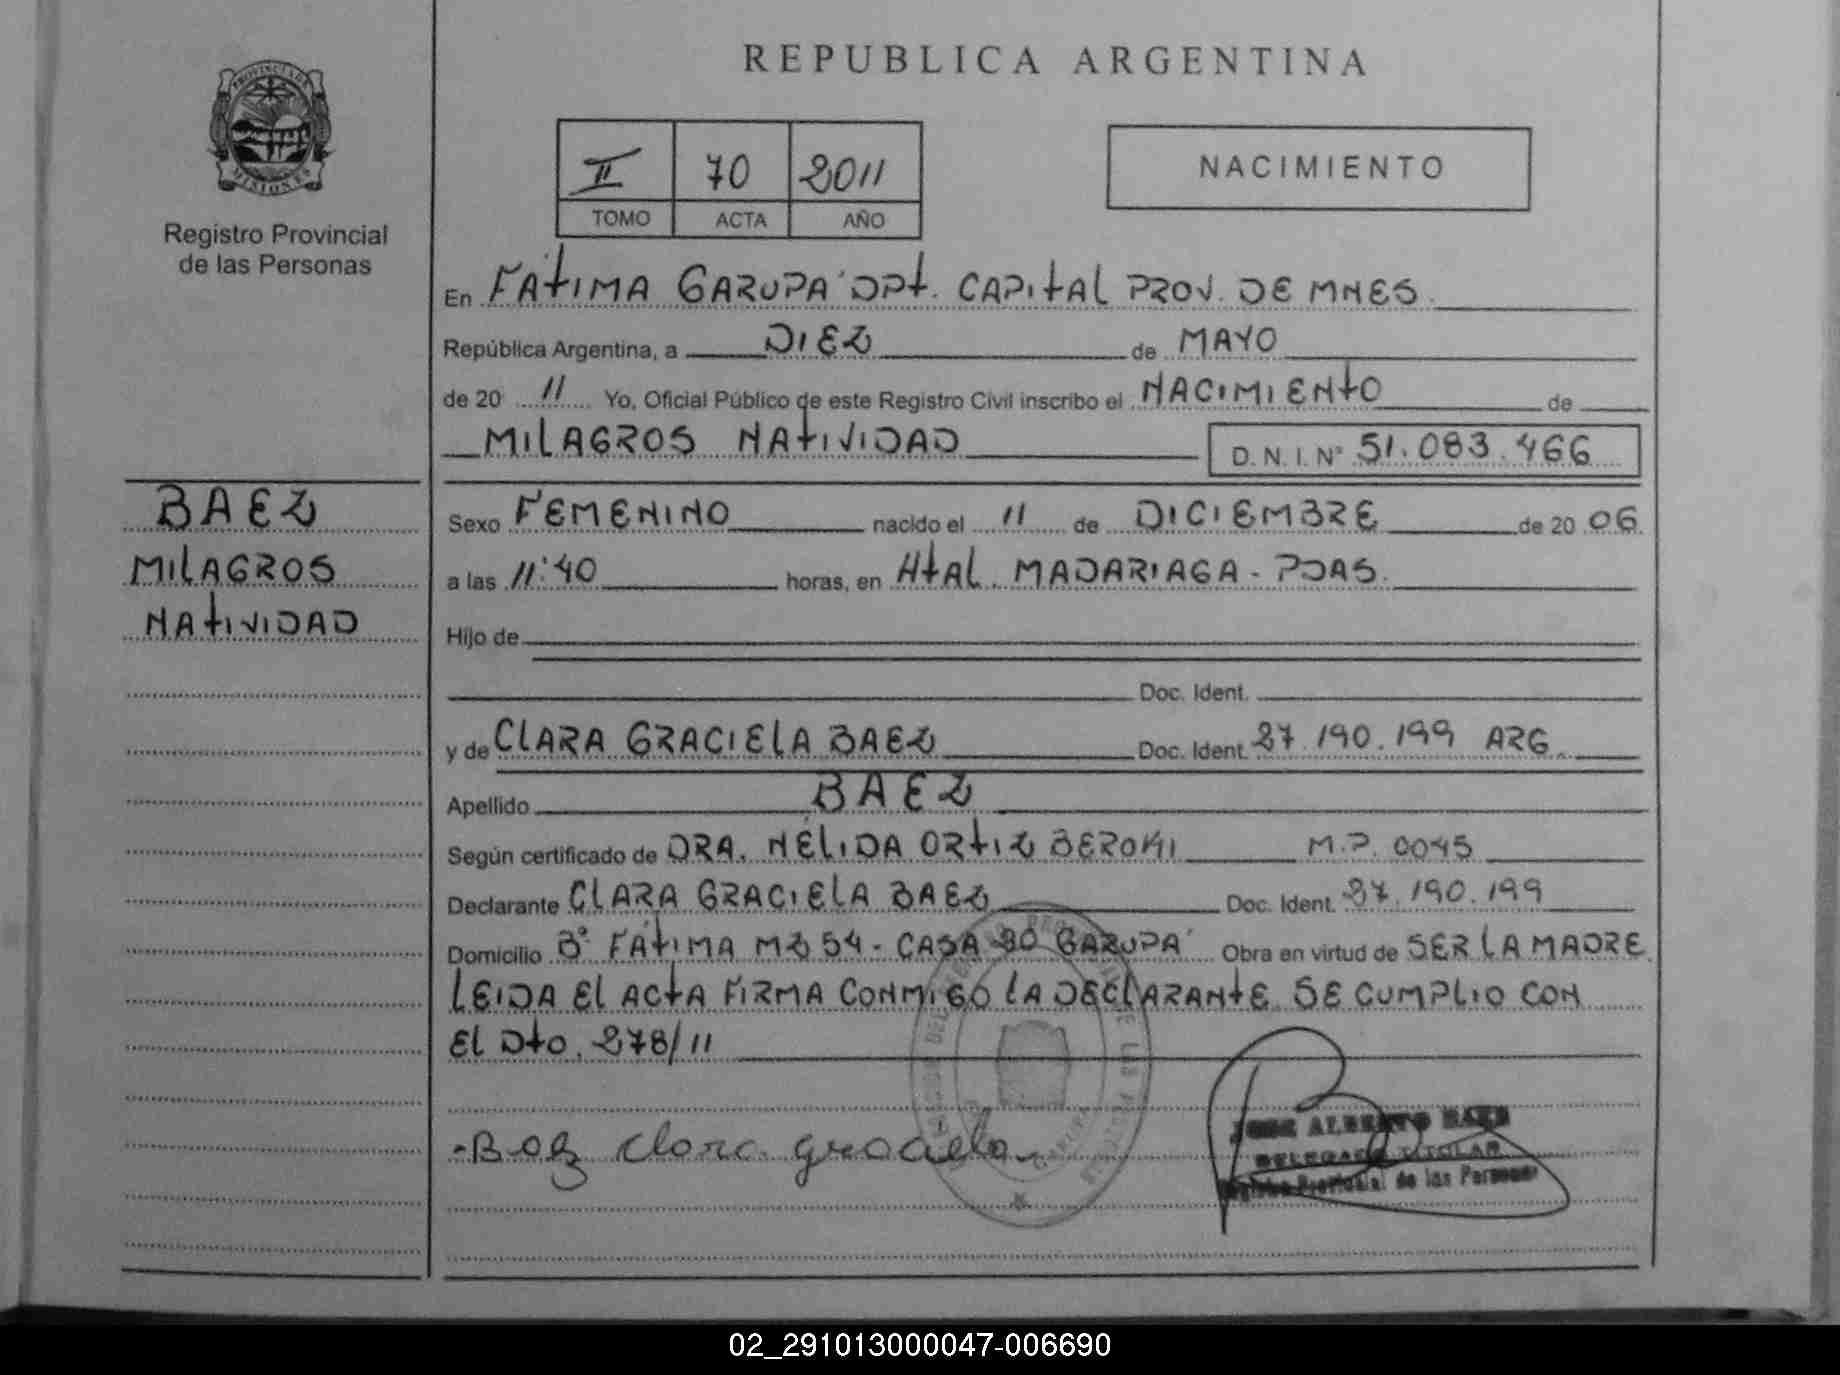 PROVINCIA DE
MISIONES
Registro Provincial
de las Personas
REPUBLICA ARGENTINA
II 70 2011
TOMO ACTA AÑO
NACIMIENTO
En FÁTIMA GARUPA' DPT. CAPITAL PROV. DE MNES.
República Argentina, a DIEZ de MAYO
de 20 11 Yo, Oficial Público de este Registro Civil inscribo el NACIMIENTO de
MILAGROS NATIVIDAD D. N. I. N° 51.083.466
BAEZ
MILAGROS
NATIVIDAD
Sexo FEMENINO nacido el 11 de DICIEMBRE de 20 06
a las 11:40 horas, en HTAL. MADARIAGA - PDAS.
Hijo de
Doc. Ident.
y de CLARA GRACIELA BAEZ Doc. Ident. 27.190.199 ARG.
Apellido BAEZ
Según certificado de DRA. NÉLIDA ORTIZ M.P. 0045
Declarante CLARA GRACIELA BAEZ Doc. Ident. 27.190.199
Domicilio B° FÁTIMA MZ 54 - CASA 20 GARUPA' Obra en virtud de SER LA MADRE
LEIDA EL ACTA FIRMA CONMIGO LA DECLARANTE. SE CUMPLIO CON
EL DTO. 278/11
Baez Clara graciela
JOSE ALBERTO BAEZ
DELEGADO TITULAR
Registro Provincial de las Personas
02_291013000047-006690